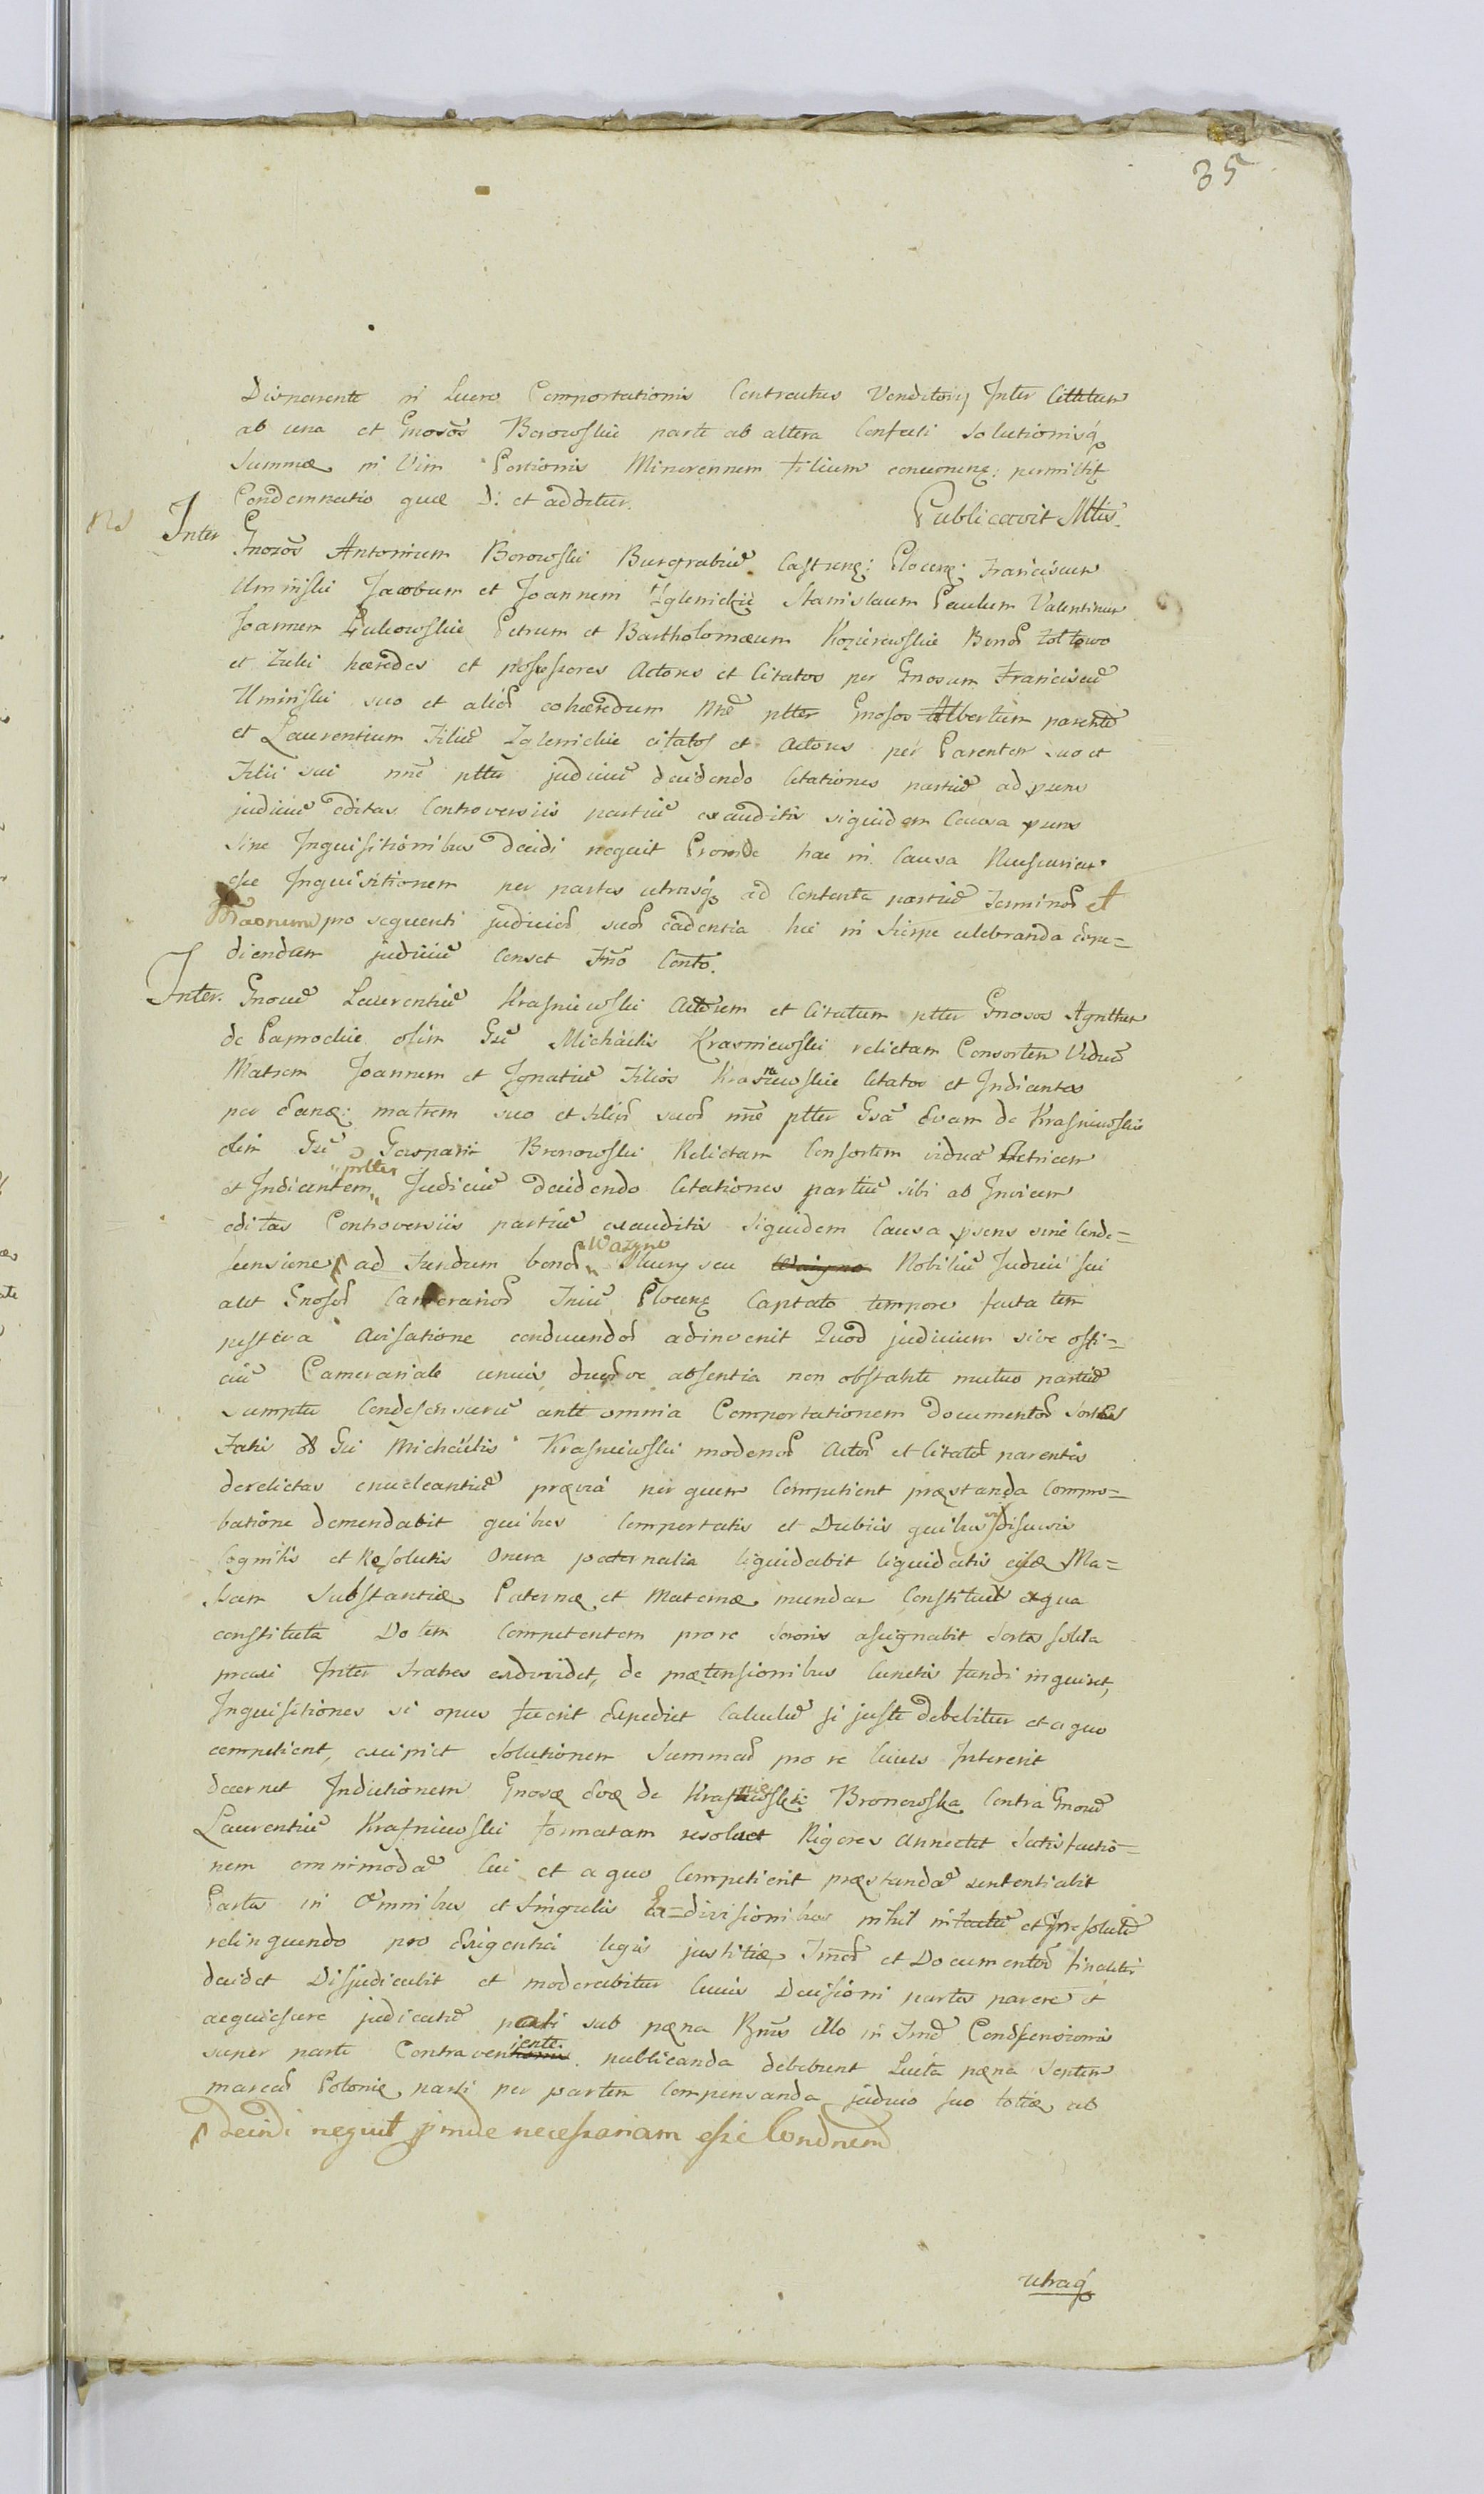 35
Disparente in Lucro Comportationis Contractus Venditorij Inter Cittatum
ab una et Gnosos Borowskie parte ab altera Confecti Solutionisq
Summæ in Vim Portionis Minorennum filium concernen: permittit
Condemnatio quæ d: et additur.
Publicavit Mtis.
Ns
Inter Gnosos Antonium Borowski Burgrabiu Castrens: Plocens: Franciscum
Uminski Jacobum et Joannem Zglenickie Stanislaum Paulum Valentinum
Joannem Petrum et Bartholomæum Kozierowskie Bonor Zoltowo
et Zuki hæredes et possessores Actores et Citatos per Gnosum Franciscu
Uminski suo et alior cohæredum nne ptter Gnosos Albertum parente
et Laurentium Filiu Zglenickie citatos et Actores per Parentem suo et
Filii sui nne ptter judiciu decidendo Citationes partiu ad psens
judiciu editas Controversiis partiu exauditis siquidem Causa psens
sine Inquisitionibus decidi nequit Proinde hac in Causa Necessariu
esse Inquisitionem per partes utrasq ad Contenta partiu Terminor et
pro sequenti judicior suor cadentia hic in celebranda expe=
diendam judiciu Censet Tno Conto.
Inter. Gnosu Laurentiu Krasniewski Actorem et Citatum ptter Gnosos Agnthen
de olim Gsi Michaelis Krasniewski relictam Consortem Vidua
Matrem Joannem et Ignatiu Filios Krasniewskie Citatos et Indicantes
per eanq: matrem suo et filior suor nne ptter Gsa Evam de Krasniewskie
olim Gsi Gasparis Bronowski Relictam Consortem vidua Actricem
et Indicantem ptter Judiciu decidendo Citationes partiu sibi ab Invicem
editas Controversiis partiu exauditis Siquidem Causa psens sine Conde=
scensione ad Fundum bonor Wazyne seu Nobiliu Judicii sui
alit Gnosor Camerarior Plocens Captato tempore facta tem
pestiva Avisatione conducendor adinvenit Quod judicium sive offi=
ciu Camerariale unius duor ve absentia non obstante mutuo partiu
sumptu Condescensuru ante omnia Comportationem documentor Sortes
Gsi Michaelis Krasniewski modernor Actor et Citator parentis
derelictas enucleantiu prævia per quem Competient præstanda Compro=
batione demandabit quibus Comportatis et Dubiis quibus vis discussis
Cognitis et Resolutis Onera paternalia liquidabit liquidatis eisq Ma=
ssam Substantiæ Paternæ et Maternæ mundam Constituet ex qua
constituta Dotem Competentem pro re Sororis assignabit Sortes
Inter fratres exdividet, de prætensionibus Cunctis fundi inquiret,
Inquisitiones si opus fuerit Expediet Calculu si juste debebitur et a quo
competient, excipiet Solutionem Summar pro re Cuius Intererit
decernet Indictionem Gnosæ Evæ de Krasniewskie Bronowska Contra Gnosu
Laurentiu Krasniewski formatam resolvet Rigores Annectet Satisfactio=
nem omnimoda Cui et a quo Competierit præstanda sententiabit
Partes in Omnibus et Singulis Ex=divisionibus nihil intactu et Irresolutu
relinquendo pro Exigentia legis justitiæ, Inscr et Documentor finaliter
decidet Disjudicabit et moderabitur Cuius Decisioni partes parere et
acquiescere judicatu pati sub pæna Bnis illo in Tno Condescensionis
super parte Contraveniente publicanda debebunt Lucta pæna Septem
marcar Polonic parti per partem Compensanda judicio suo toties ab
decidi nequit proinde necessariam esse Condnem
utraq